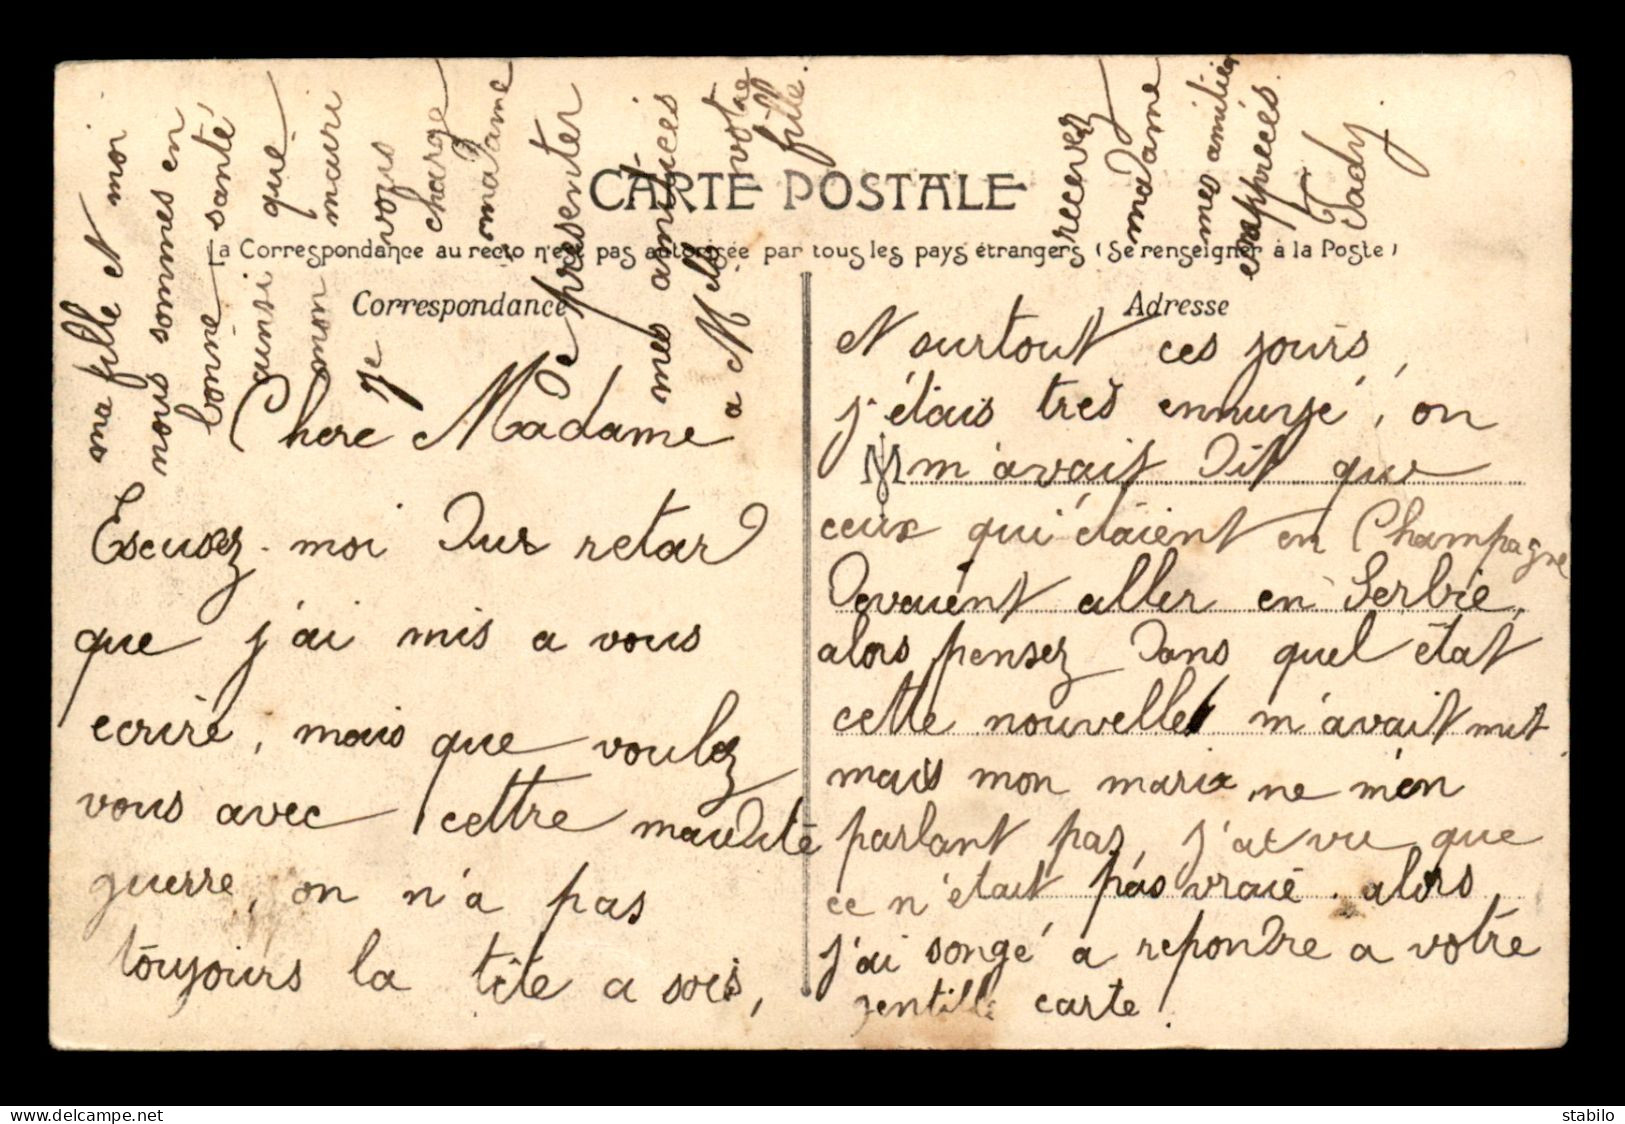 CARTE POSTALE
La Correspondance au recto n'est pas autorisée par tous les pays étrangers (Se renseigner à la Poste)
Correspondance
Adresse
Chere Madame
Escusez-moi Dus retard
que j'ai mis a vous
ecrire, mais que voulez
vous avec cettre maudite
guerre, on n'a pas
toujours la tête a soi,
et surtout ces jours,
j'étais tres ennuyé, on
M m'avait Dit que
ceux qui étaient en Champagne
Devaient aller en Serbie,
alors pensez Dans quel état
cette nouvelle m'avait mit
mais mon marix ne m'en
parlant pas, j'ai vu que
ce n'était pas vraie. alors,
j'ai songé a repondre a votre
gentille carte.
ma fille et moi
nous sommes en
bonne santé
ainsi que
mon mari
je vous
charge
madame
De presenter
mes amitiées
a Mlle votre
fille.
recevez
madame
mes amitiés
appreciés.
T Jady
stabilo